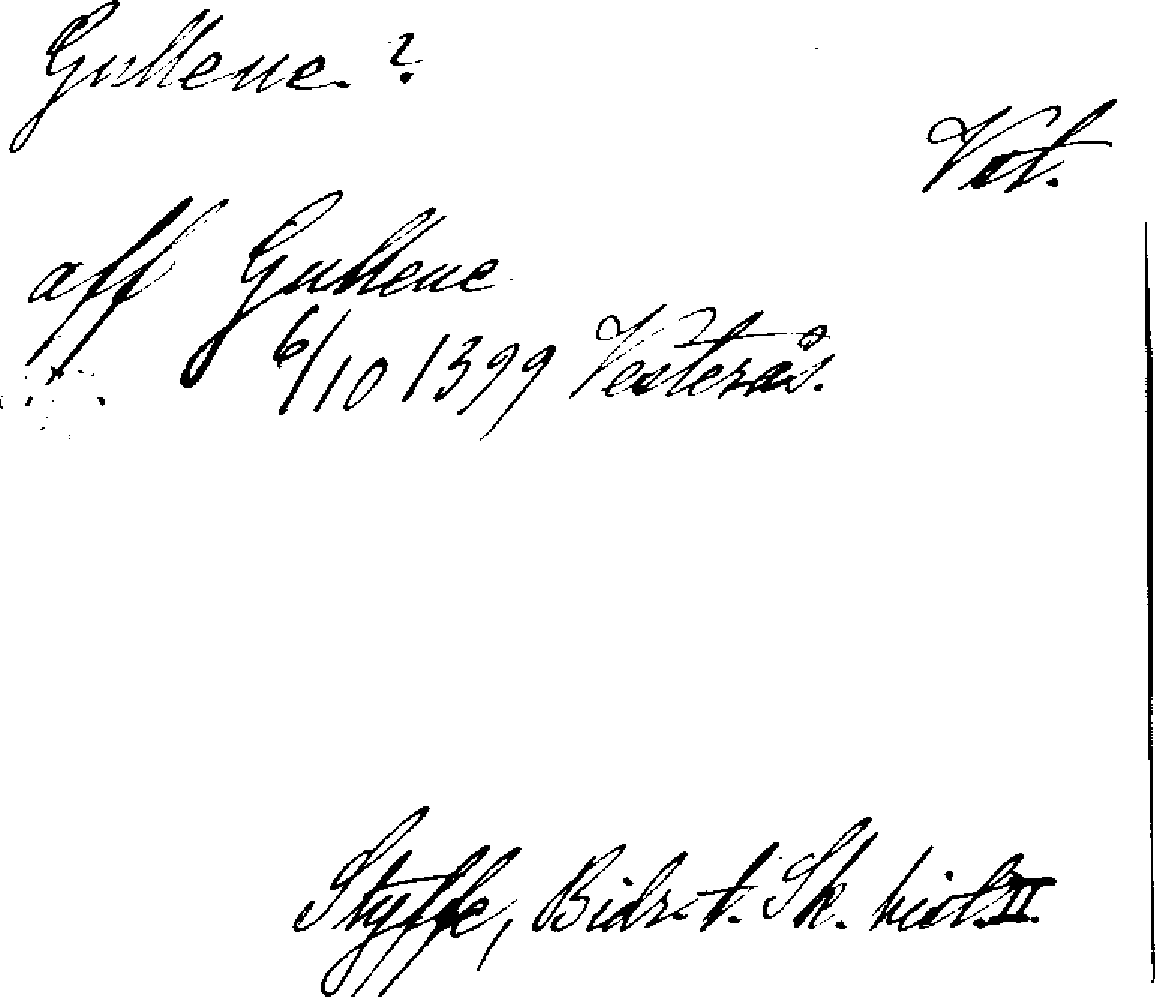 Gullene ?
Vst.
aff Gullene
6/10 1399 Vesterås.
Styffe, Bidr. t. Sk. hist. II.